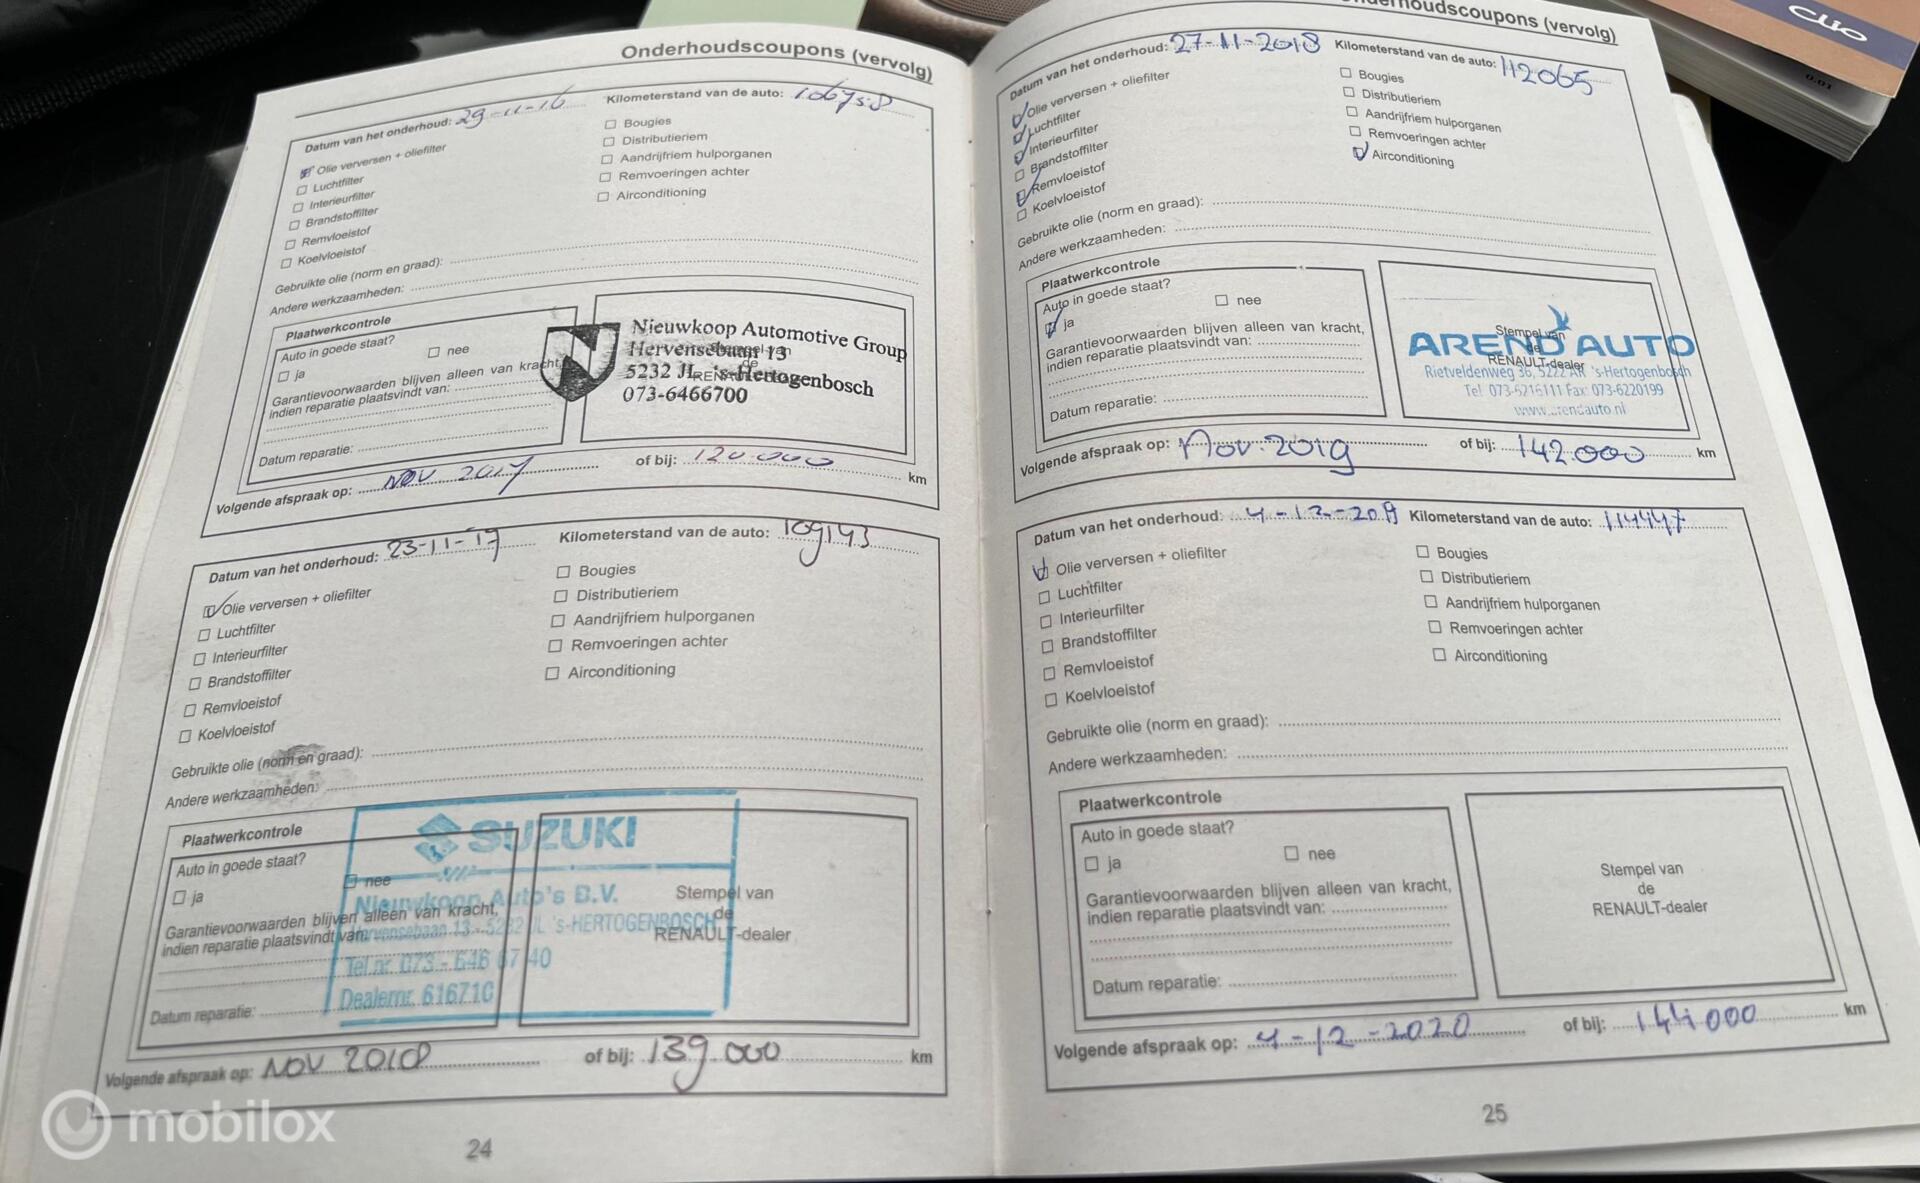 Onderhoudscoupons (vervolg)
Datum van het onderhoud: 29-11-16 Kilometerstand van de auto: 106758
Olie verversen + oliefilter
Luchtfilter
Interieurfilter
Brandstoffilter
Remvloeistof
Koelvloeistof
Bougies
Distributieriem
Aandrijfriem hulporganen
Remvoeringen achter
Airconditioning
Gebruikte olie (norm en graad):
Andere werkzaamheden:
Plaatwerkcontrole
Auto in goede staat?
ja nee
Garantievoorwaarden blijven alleen van kracht,
indien reparatie plaatsvindt van:
Datum reparatie:
Nieuwkoop Automotive Group
Hervensebaan 13
5232 JL 's-Hertogenbosch
073-6466700
Stempel van
de
Volgende afspraak op: NOV 2017 of bij: 120.000 km
Datum van het onderhoud: 23-11-17 Kilometerstand van de auto: 109143
Olie verversen + oliefilter
Luchtfilter
Interieurfilter
Brandstoffilter
Remvloeistof
Koelvloeistof
Bougies
Distributieriem
Aandrijfriem hulporganen
Remvoeringen achter
Airconditioning
Gebruikte olie (norm en graad):
Andere werkzaamheden:
Plaatwerkcontrole
Auto in goede staat?
ja nee
Garantievoorwaarden blijven alleen van kracht,
indien reparatie plaatsvindt van:
Datum reparatie:
SUZUKI
Nieuwkoop Auto's B.V.
Hervensebaan 13 - 5232 JL 's-HERTOGENBOSCH
Tel.nr. 073 - 646 67 40
Dealernr. 616710
Stempel van
de
RENAULT-dealer
Volgende afspraak op: NOV 2018 of bij: 139.000 km
24
Onderhoudscoupons (vervolg)
Datum van het onderhoud: 27-11-2018 Kilometerstand van de auto: 112065
Olie verversen + oliefilter
Luchtfilter
Interieurfilter
Brandstoffilter
Remvloeistof
Koelvloeistof
Bougies
Distributieriem
Aandrijfriem hulporganen
Remvoeringen achter
Airconditioning
Gebruikte olie (norm en graad):
Andere werkzaamheden:
Plaatwerkcontrole
Auto in goede staat?
ja nee
Garantievoorwaarden blijven alleen van kracht,
indien reparatie plaatsvindt van:
Datum reparatie:
Stempel van
de
RENAULT-dealer
AREND AUTO
Rietveldenweg 36, 5222 AR 's-Hertogenbosch
Tel 073-6216111 Fax 073-6220199
www.arendauto.nl
Volgende afspraak op: Nov. 2019 of bij: 142.000 km
Datum van het onderhoud: 4-12-2019 Kilometerstand van de auto: 114447
Olie verversen + oliefilter
Luchtfilter
Interieurfilter
Brandstoffilter
Remvloeistof
Koelvloeistof
Bougies
Distributieriem
Aandrijfriem hulporganen
Remvoeringen achter
Airconditioning
Gebruikte olie (norm en graad):
Andere werkzaamheden:
Plaatwerkcontrole
Auto in goede staat?
ja nee
Garantievoorwaarden blijven alleen van kracht,
indien reparatie plaatsvindt van:
Datum reparatie:
Stempel van
de
RENAULT-dealer
Volgende afspraak op: 4-12-2020 of bij: 144000 km
25
Clio
0.01
mobilox